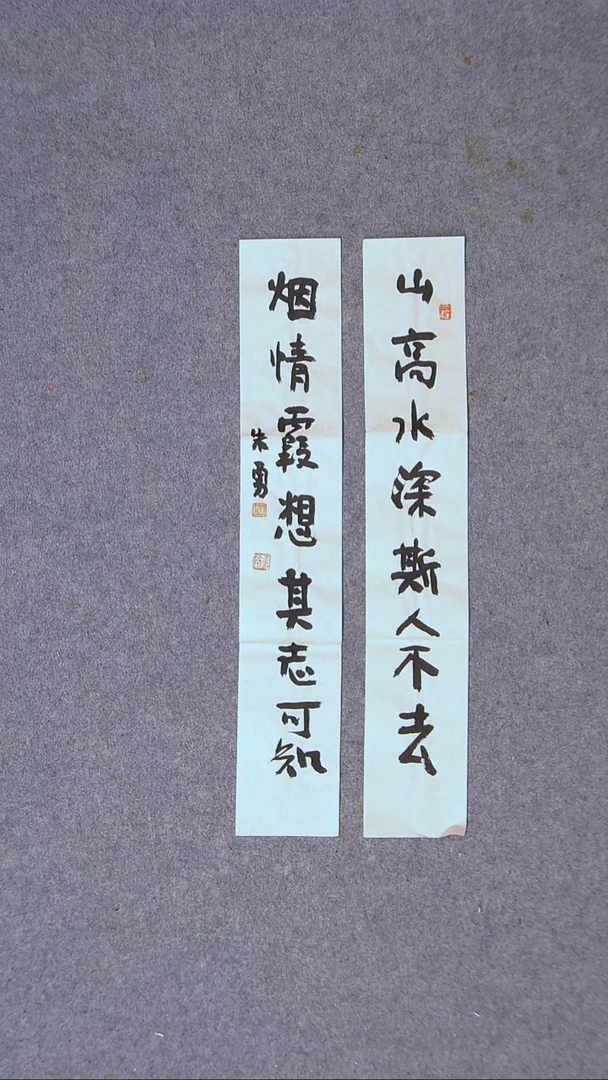 山高水深斯人不去
烟情霞想其志可知
朱勇